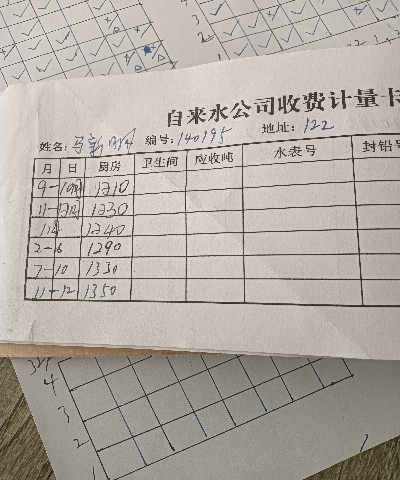 自来水公司收费计量卡
姓名: 马新明 编号: 140195 地址: 122
月 日 厨房 卫生间 应收吨 水表号 封铅号
9-10 1210
11-12 1230
1240
2-6 1290
7-10 1330
11-12 1350
4
3
2
1